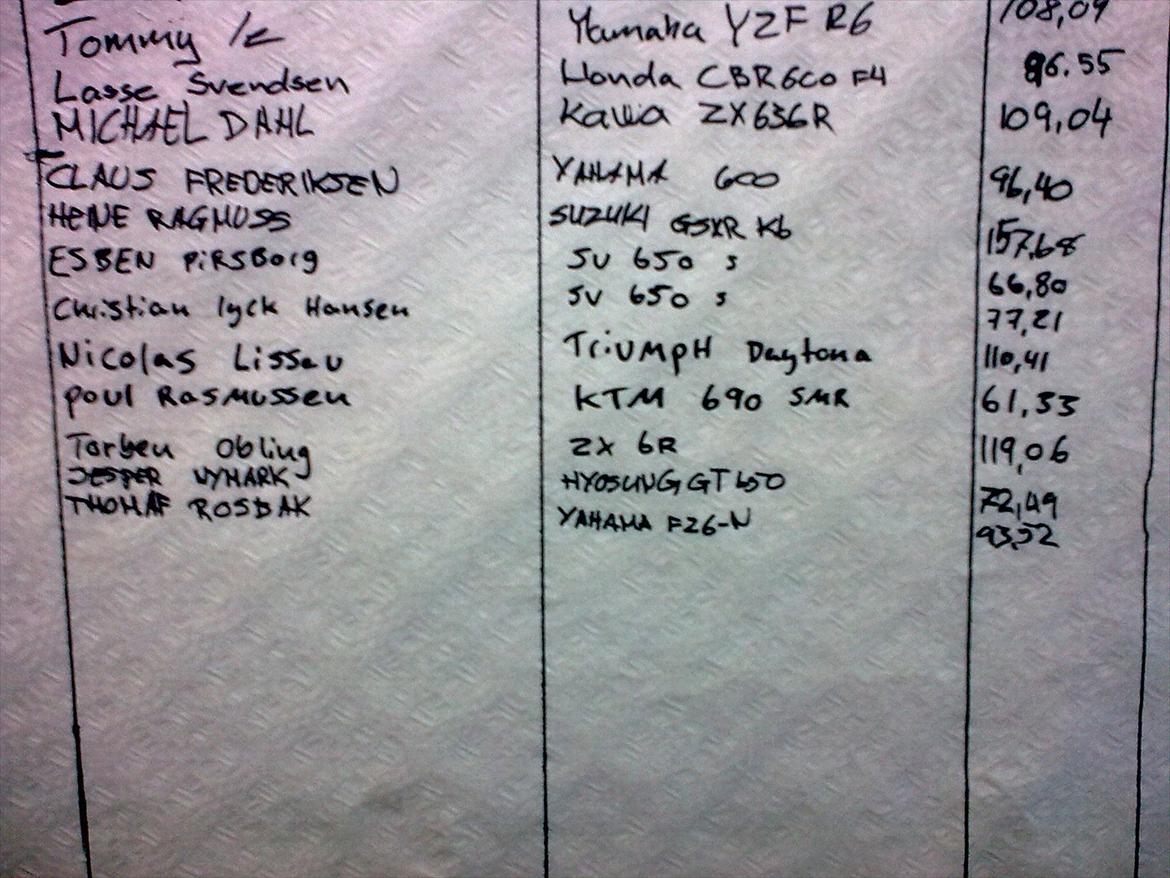 Tommy Yamaha YZF R6 108,09
Lasse Svendsen Honda CBR600 F4 96.55
MICHAEL DAHL Kawa ZX636R 109,04
CLAUS FREDERIKSEN YAHAMA 600 96,40
HEINE RAGMUSS SUZUKI GSXR K6 157,68
ESBEN PiRSBorg SU 650 s 66,80
Christian lyck Hansen SV 650 s 77,21
Nicolas Lissau TriUMpH Daytona 110,41
poul RASMUSSEN KTM 690 SMR 61,33
Torben Obling ZX 6R 119,06
JESPER NYMARK HYOSUNG GT 650 72,49
THOMAS ROSBAK YAHAMA FZ6-N 93,52